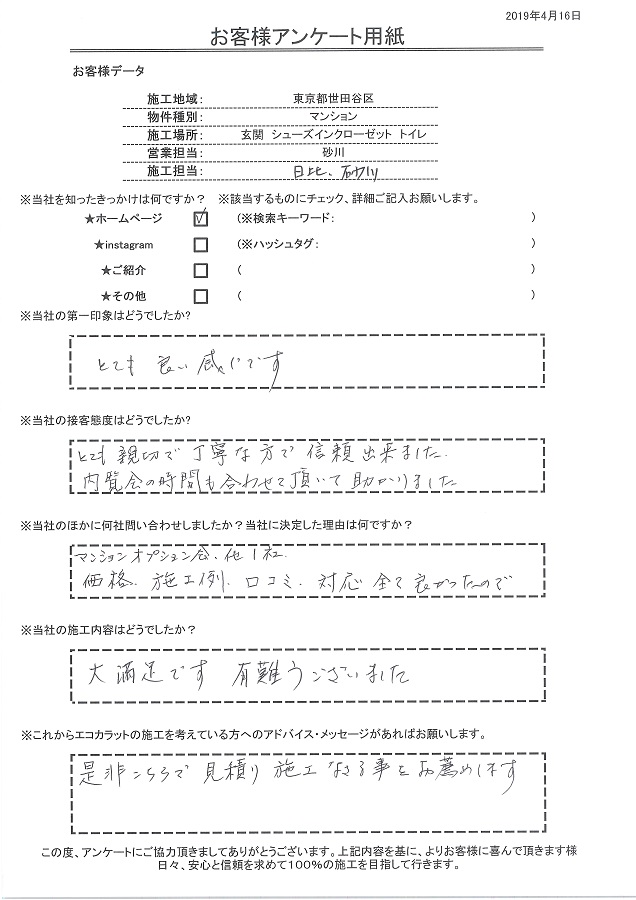 2019年4月16日
お客様アンケート用紙
お客様データ
施工地域： 東京都世田谷区
物件種別： マンション
施工場所： 玄関 シューズインクローゼット トイレ
営業担当： 砂川
施工担当： 日比、砂川
※当社を知ったきっかけは何ですか？ ※該当するものにチェック、詳細ご記入お願いします。
★ホームページ ☑ （※検索キーワード： ）
★instagram □ （※ハッシュタグ： ）
★ご紹介 □ （ ）
★その他 □ （ ）
※当社の第一印象はどうでしたか？
とても 良い 感じです
※当社の接客態度はどうでしたか？
とても 親切で 丁寧な方で 信頼出来ました.
内覧会の時間も合わせて頂いて助かりました
※当社のほかに何社問い合わせしましたか？当社に決定した理由は何ですか？
マンションオプション会、他1社.
価格、施工例、口コミ、対応 全て良かったので
※当社の施工内容はどうでしたか？
大満足です 有難うございました
※これからエコカラットの施工を考えている方へのアドバイス・メッセージがあればお願いします。
是非こちらで 見積り 施工 なさる事をお薦めします
この度、アンケートにご協力頂きましてありがとうございます。上記内容を基に、よりお客様に喜んで頂きます様
日々、安心と信頼を求めて100％の施工を目指して行きます。